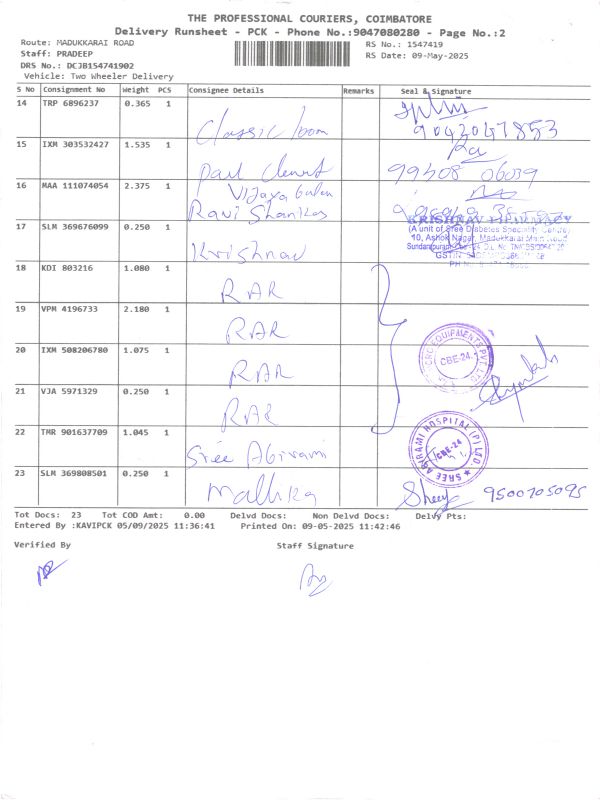 THE PROFESSIONAL COURIERS, COIMBATORE
Delivery Runsheet - PCK - Phone No.:9047080280 - Page No.:2
Route: MADUKKARAI ROAD
RS No.: 1547419
Staff: PRADEEP
RS Date: 09-May-2025
DRS No.: DCJB154741902
Vehicle: Two Wheeler Delivery
S No Consignment No Weight PCS Consignee Details Remarks Seal & Signature
14 TRP 6896237 0.365 1 Classic loom
9042047853
15 IXM 303532427 1.535 1 Paul
99408 06039
16 MAA 111074054 2.375 1 Vijaya
Ravi Shankar
17 SLM 369676099 0.250 1 Krishna
KRISHNAV
(A unit of Sree Diabetes Speciality Centre)
10, Ashok Nagar, Madukkarai Main Road
18 KDI 803216 1.080 1 RAR
19 VPM 4196733 2.180 1 RAR
EQUIPMENTS PVT LTD
CBE-24
20 IXM 508206780 1.075 1 RAR
21 VJA 5971329 0.250 1 RAR
22 TMR 901637709 1.045 1 Sree Abirami
SREE ABIRAMI HOSPITAL (P) LTD.
CBE-24
23 SLM 369808501 0.250 1 Mallika
9500705095
Tot Docs: 23 Tot COD Amt: 0.00 Delvd Docs: Non Delvd Docs: Delvy Pts:
Entered By :KAVIPCK 05/09/2025 11:36:41 Printed On: 09-05-2025 11:42:46
Verified By Staff Signature